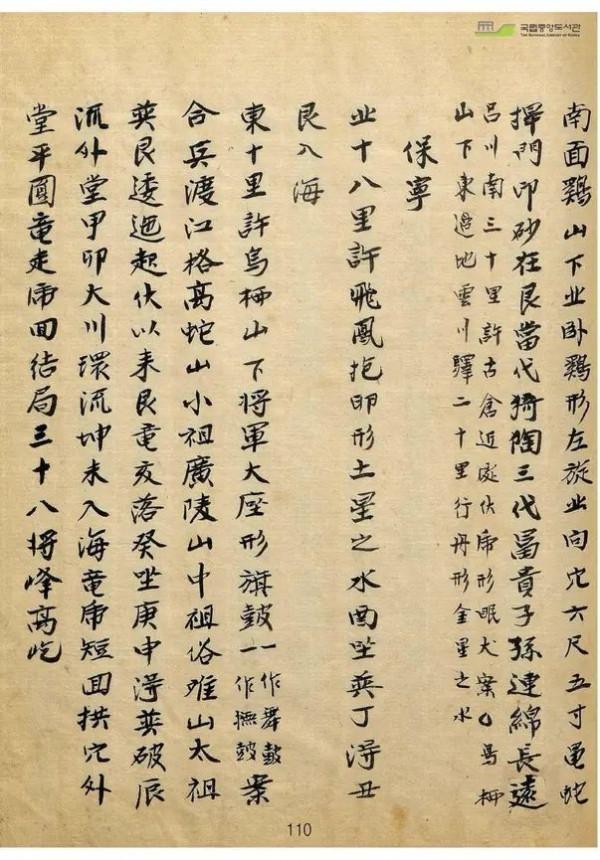 국립중앙도서관
THE NATIONAL LIBRARY OF KOREA
南面鷄山下北卧鷄形左旋北向穴六尺五寸亀蛇
捍門印砂在艮當代猗陶三代冨貴子孫連綿長遠
呂川南三十里許古倉近處伏乕形眠犬案〇烏栖
山下東邉地雲川驛二十里行舟形金星之水
保寧
北十八里許飛鳳抱卵形土星之水酉坐巽丁淂丑
艮入海
東十里許烏栖山下将軍大座形旗鼓一作舞鼓一作撫鼓案
合兵渡江格髙蛇山小祖廣陵山中祖俗难山太祖
巽艮逶迤起伏以来艮竜亥落癸坐庚申淂巽破辰
流外堂甲卯大川環流坤未入海竜乕短回拱穴外
堂平圓竜走乕回結局三十八将峰髙屹
110